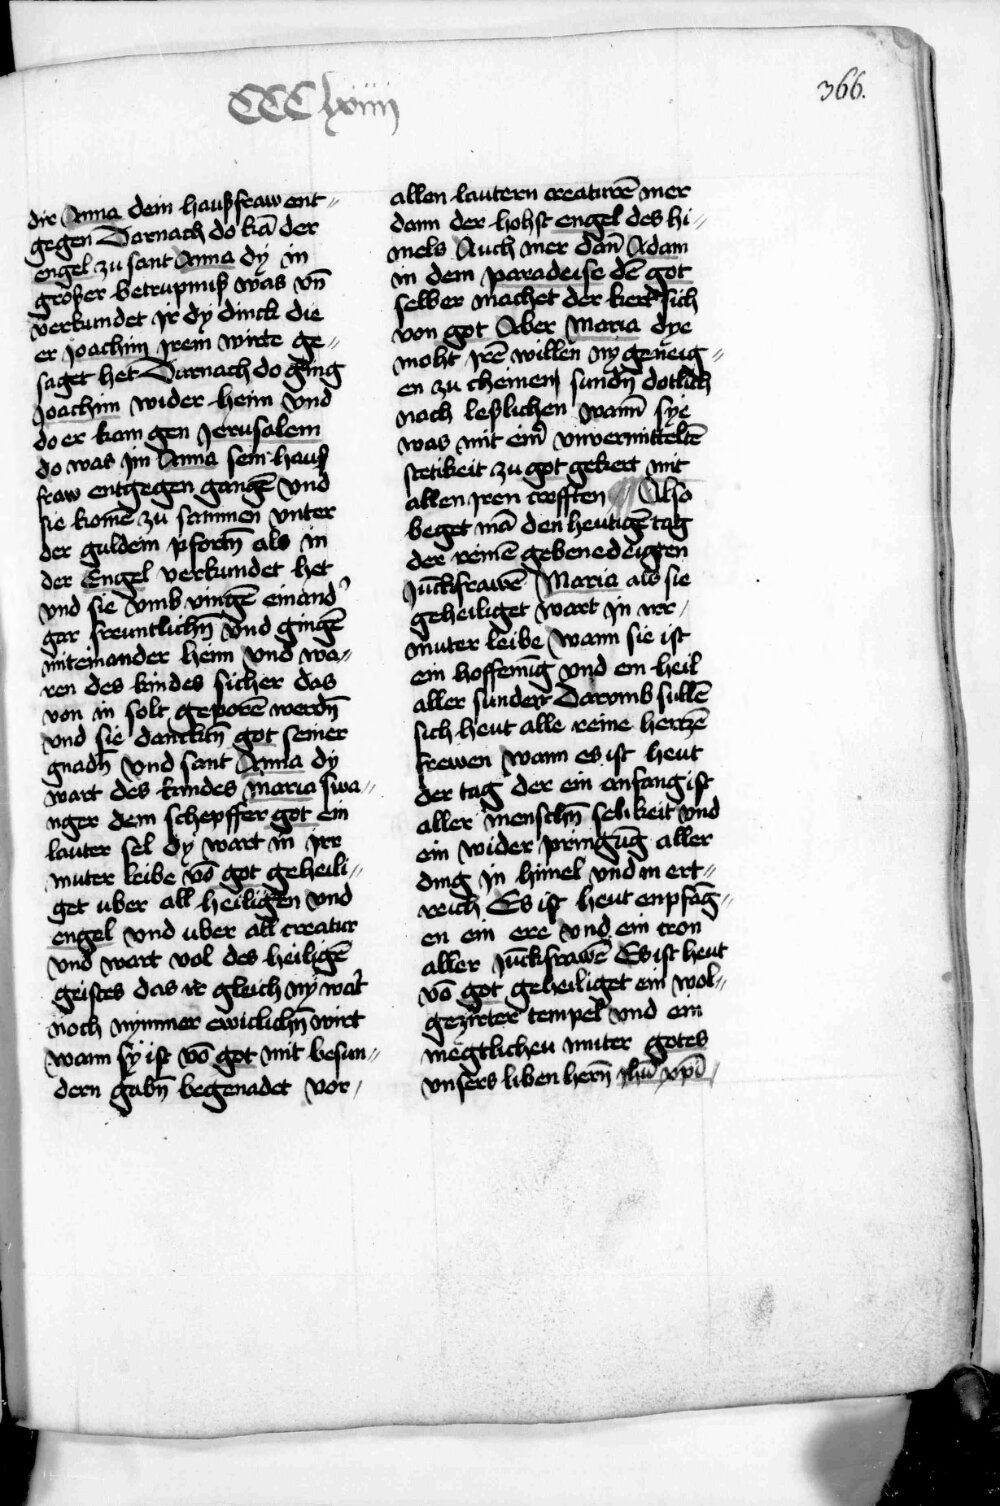 CCClxiiij
366.
dir Anna dein haußfraw ent〃
gegen Darnach do kā der
engel zu sant Anna dy in
großer betrupniß was vn̄
verkundet ir dy dinck die
er Joachim irem wirte ge〃
saget het Darnach do ging
Joachim wider heim vnd
do er kam gen Jerusalem
do was im Anna sein hauß
fraw entgegen gangē vnd
sie komē zu sammen vnter
der guldein pfortn̄ als in
der Engel verkundet het
vnd sie vmb vingē einand'
gar freuntlichn̄ vnd gingē
miteinander heim vnd wa〃
ren des kindes sicher das
von in solt geporē werdn̄
vnd sie danckitn̄ got seiner
gnadn̄ vnd sant Anna dy
wart des kindes maria swa〃
nger dem schepffer got ein
lauter sel dy wart in irr
muter leibe vō got geheili〃
get uber all heiligen vnd
engel vnd uber all creatur
vnd wart vol des heiligē
geistes das ir gleich ny wart
noch nymmer ewiclichn̄ wirt
wann sy ist vō got mit besun〃
dern gabn̄ begenadet vor/
allen lautern creaturē mer
dann der hohst engel des hi〃
mels Auch mer dan̄ Adam
in dem paradeise dē got
selber machet der kert sich
von got Aber Maria dye
moht irē willen ny geneig〃
en zu cheinen sundn̄ dotlich
nach leßlichen wann̄ sye
was mit eim̄ vnvermitteltē
stetikeit zu got gekert mit
allen iren crefften ¶ Also
beget mā den heutigē tag
der reinē gebenedeigten
Juckfrawē Maria als sie
geheiliget wart in irr/
muter leibe wann sie ist
ein hoffenūg vnd ein heil
aller sunder Darvmb sullē
sich heut alle reine hertzē
frewen wann es ist heut
der tag der ein anfang ist
aller menschn̄ selikeit vnd
ein wider pringūg aller
ding in himel vnd in ert〃
reich Es ist heut enpfāg〃
en ein ere vnd ein cron
aller Juckfrawē Es ist heut
vō got geheiliget ein wol〃
gezirter tempel vnd ein
megtlicheu muter gotes
vnsers liben hern̄ ihū xpī